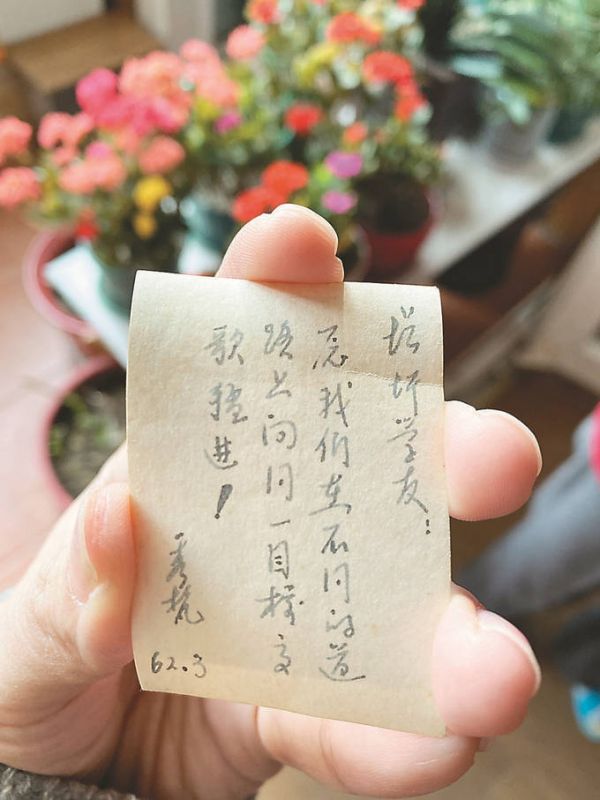 培圻学友：
愿我们在不同的道
路上向同一目标高
歌猛进！
秀
62.3